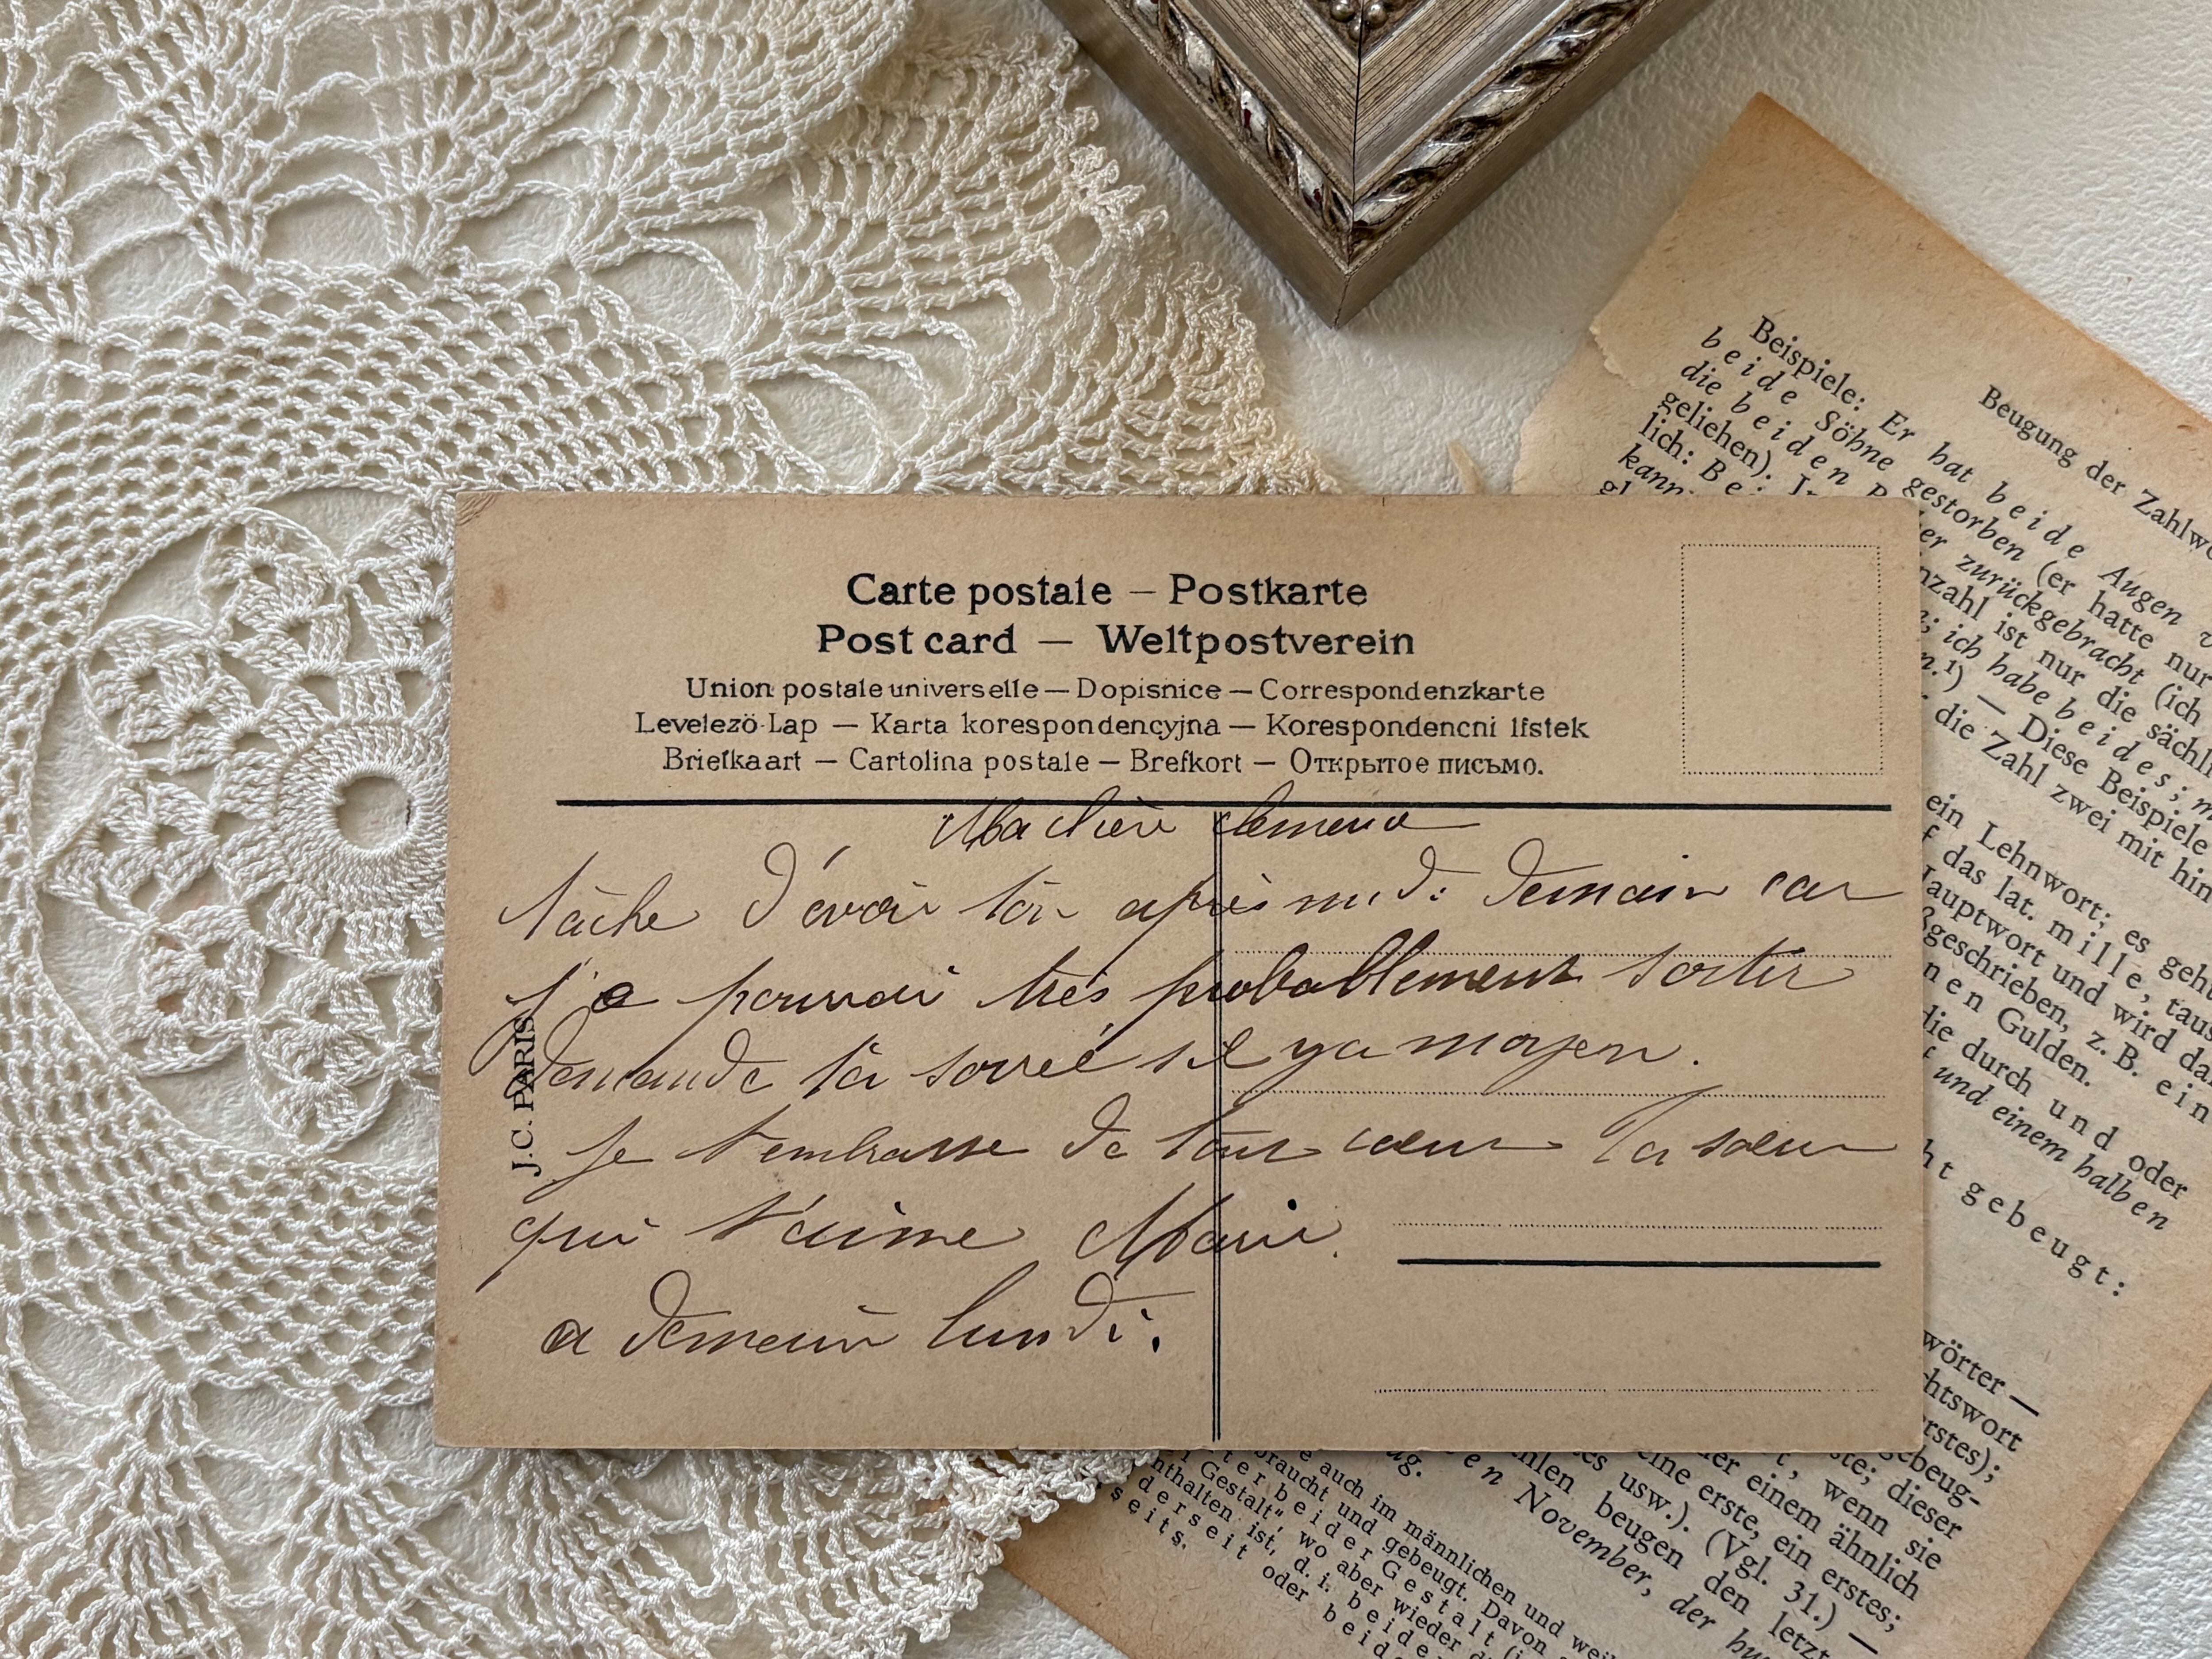 Carte postale — Postkarte
Post card — Weltpostverein
Union postale universelle — Dopisnice — Correspondenzkarte
Levelezö-Lap — Karta korespondencyjna — Korespondencni lístek
Briefkaart — Cartolina postale — Brefkort — Открытое письмо.
J.C. PARIS
Ma chère
tâche d'avoir ton après mid: demain car
j'e pourrai très probablement sortir
demande ta soiré s'il y a moyen.
je t'embrasse de tout coeur Ta soeur
qui t'aime Marie.
a demain lundi.
Beugung der Zahlwö
Beispiele: Er hat beide Augen v
beide Söhne gestorben (er hatte nur
die beiden
er zurückgebracht (ich
geliehen).
nzahl ist nur die sächli
lich:
; ich habe beides; m
kann
n.¹) — Diese Beispiele
die Zahl zwei mit hin
ein Lehnwort; es geht
f das lat. mille, taus
Hauptwort und wird da
ßgeschrieben, z. B. ein
nen Gulden.
die durch und oder
f und einem halben
ht gebeugt:
wörter —
htswort
erstes);
gebeug-
ste; dieser
t, wenn sie
ner einem ähnlich
eine erste, ein erstes;
es usw.). (Vgl. 31.) —
hlen beugen den letzt
en November, der hu
ug.
e auch im männlichen und wei
braucht und gebeugt. Davon
ter beider Gestalt (i
r Gestalt", wo aber wieder d
nthalten ist, d. i. beide
derseit oder beid
rseits.